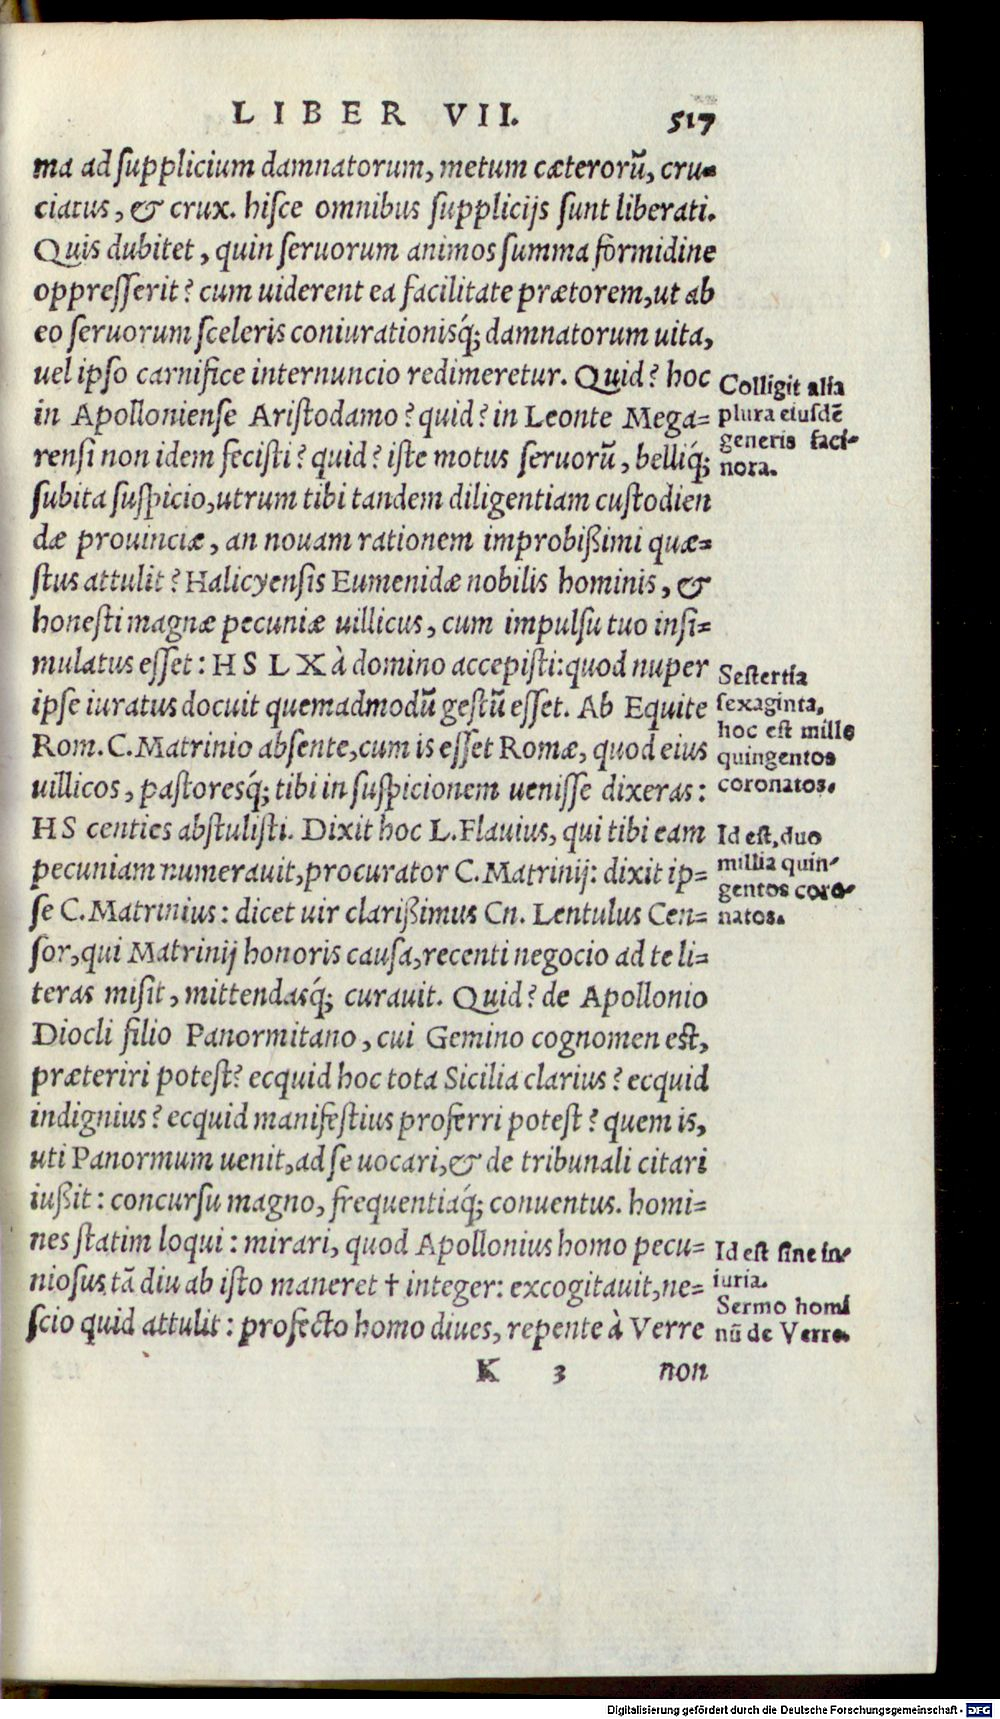 LIBER VII. 517
ma ad ſupplicium damnatorum, metum cæterorū, cru-
ciatus, & crux. hiſce omnibus ſupplicijs ſunt liberati.
Quis dubitet, quin ſeruorum animos ſumma formidine
oppreſſerit? cum uiderent ea facilitate prætorem, ut ab
eo ſeruorum ſceleris coniurationisq́; damnatorum uita,
uel ipſo carnifice internuncio redimeretur. Quid? hoc
in Apollonienſe Ariſtodamo? quid? in Leonte Mega-
renſi non idem feciſti? quid? iſte motus ſeruorū, belliq́;
ſubita ſuſpicio, utrum tibi tandem diligentiam cuſtodien
dæ prouinciæ, an nouam rationem improbißimi quæ-
ſtus attulit? Halicyenſis Eumenidæ nobilis hominis, &
honeſti magnæ pecuniæ uillicus, cum impulſu tuo inſi-
mulatus eſſet: HS LX à domino accepiſti: quod nuper
ipſe iuratus docuit quemadmodū geſtū eſſet. Ab Equite
Rom. C. Matrinio abſente, cum is eſſet Romæ, quod eius
uillicos, paſtoresq́; tibi in ſuſpicionem ueniſſe dixeras:
HS centies abſtuliſti. Dixit hoc L. Flauius, qui tibi eam
pecuniam numerauit, procurator C. Matrinij: dixit ip-
ſe C. Matrinius: dicet uir clarißimus Cn. Lentulus Cen-
ſor, qui Matrinij honoris cauſa, recenti negocio ad te li-
teras miſit, mittendasq́; curauit. Quid? de Apollonio
Diocli filio Panormitano, cui Gemino cognomen eſt,
præteriri poteſt? ecquid hoc tota Sicilia clarius? ecquid
indignius? ecquid manifeſtius proferri poteſt? quem is,
uti Panormum uenit, ad ſe uocari, & de tribunali citari
iußit: concurſu magno, frequentiaq́; conuentus. homi-
nes ſtatim loqui: mirari, quod Apollonius homo pecu-
nioſus tā diu ab iſto maneret † integer: excogitauit, ne-
ſcio quid attulit: profecto homo diues, repente à Verre
K 3 non
Colligit alia
plura eiuſdē
generis faci-
nora.
Seſtertia
ſexaginta,
hoc eſt mille
quingentos
coronatos.
Id eſt, duo
millia quin-
gentos coro-
natos.
Id eſt ſine in-
iuria.
Sermo homi
nū de Verre.
Digitalisierung gefördert durch die Deutsche Forschungsgemeinschaft - DFG